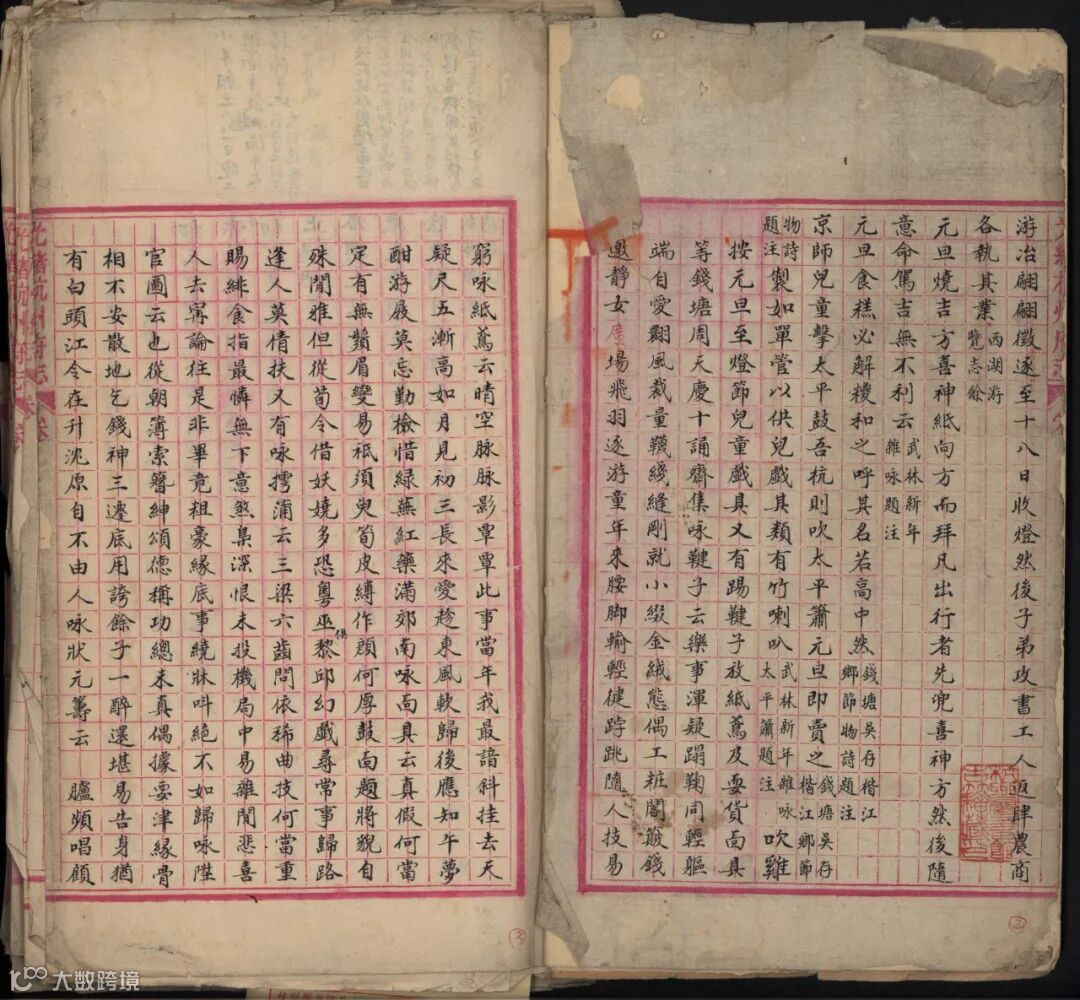 游冶翩翩徵逐至十八日收燈然後子弟攻書工人返肆農商
各執其業西湖游覽志餘
元旦燒吉方喜神紙向方而拜凡出行者先兜喜神方然後隨
意命駕吉無不利云武林新年雜咏題注
元旦食糕必解糭和之呼其名若高中然錢塘吳存楷江鄉節物詩題注
京師兒童擊太平鼓吾杭則吹太平簫元旦即賣之錢塘吳存楷江鄉節
物詩題注製如單管以供兒戲其類有竹喇叭武林新年雜咏太平簫題注吹雞
按元旦至燈節兒童戲具又有踢鞬子放紙鳶及耍貨面具
等錢塘周天慶十誦齋集咏鞬子云樂事渾疑蹋鞠同輕軀
端自愛翾風裁量韈綫縫剛就小綴金絨態偶工粧閣簸錢
邀靜女廣場飛羽逐游童年來腰脚輸輕健踔跳隨人技易
窮咏紙鳶云晴空脉脉影覃覃此事當年我最諳斜挂去天
疑尺五漸高如月見初三長來愛趁東風軟歸後應知午夢
酣游屐莫忘勤檢惜綠蕪紅藥滿郊南咏面具云真假何當
定有無鬚眉變易祇須臾筍皮縛作顏何厚鼓面題將貌自
殊閒雅但從荀令借妖嬈多恐粵巫供黎邱幻戲尋常事歸路
逢人莫倩扶又有咏摴蒲云三梁六齒問依稀曲技何當重
賜緋食指最憐無下意煞梟深恨未投機局中易雜閒悲喜
人去寧論往是非畢竟粗豪緣底事繞牀叫絕不如歸咏陞
官圖云也從朝簿索簪紳頌德稱功總未真偶據要津緣骨
相不安散地乞錢神三遷底用誇餘子一醉還堪易告身猶
有白頭江令在升沈原自不由人咏狀元籌云 臚頻唱顧
光緒杭州府志
卷
③
②
大数跨境